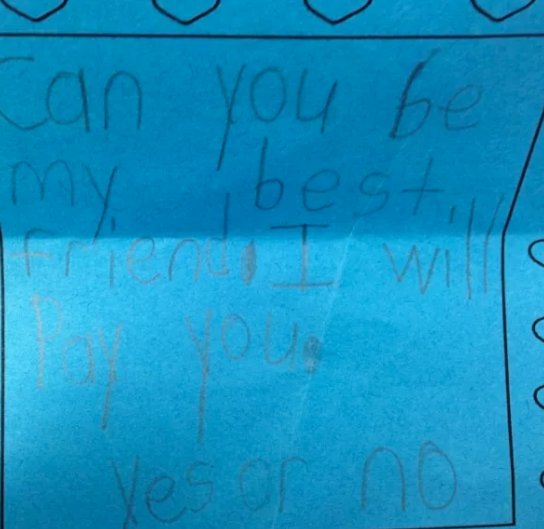 Can you be
my best
friend. I will
Pay you.
yes or no